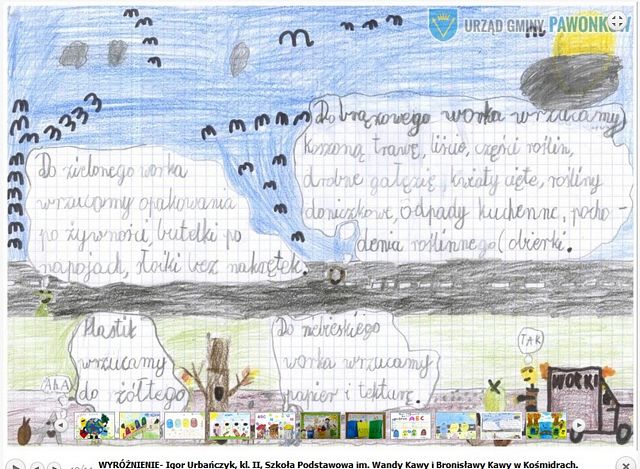 URZĄD GMINY PAWONKÓW
Do brązowego worka wrzucamy
koszoną trawę, liście, części roślin,
drobne gałęzie, kwiaty cięte, rośliny
doniczkowe, odpady kuchenne, pocho-
denia roślinnego (obierki.
Do zielonego worka
wrzucamy opakowania
po żywności, butelki po
napojach, słoiki bez nakrętek.
Plastik
wrzucamy
do żółtego
Do niebieskiego
worka wrzucamy
papier i tekturę.
AHA
TAK
WORKI
WYRÓŻNIENIE- Igor Urbańczyk, kl. II, Szkoła Podstawowa im. Wandy Kawy i Bronisławy Kawy w Kośmidrach.